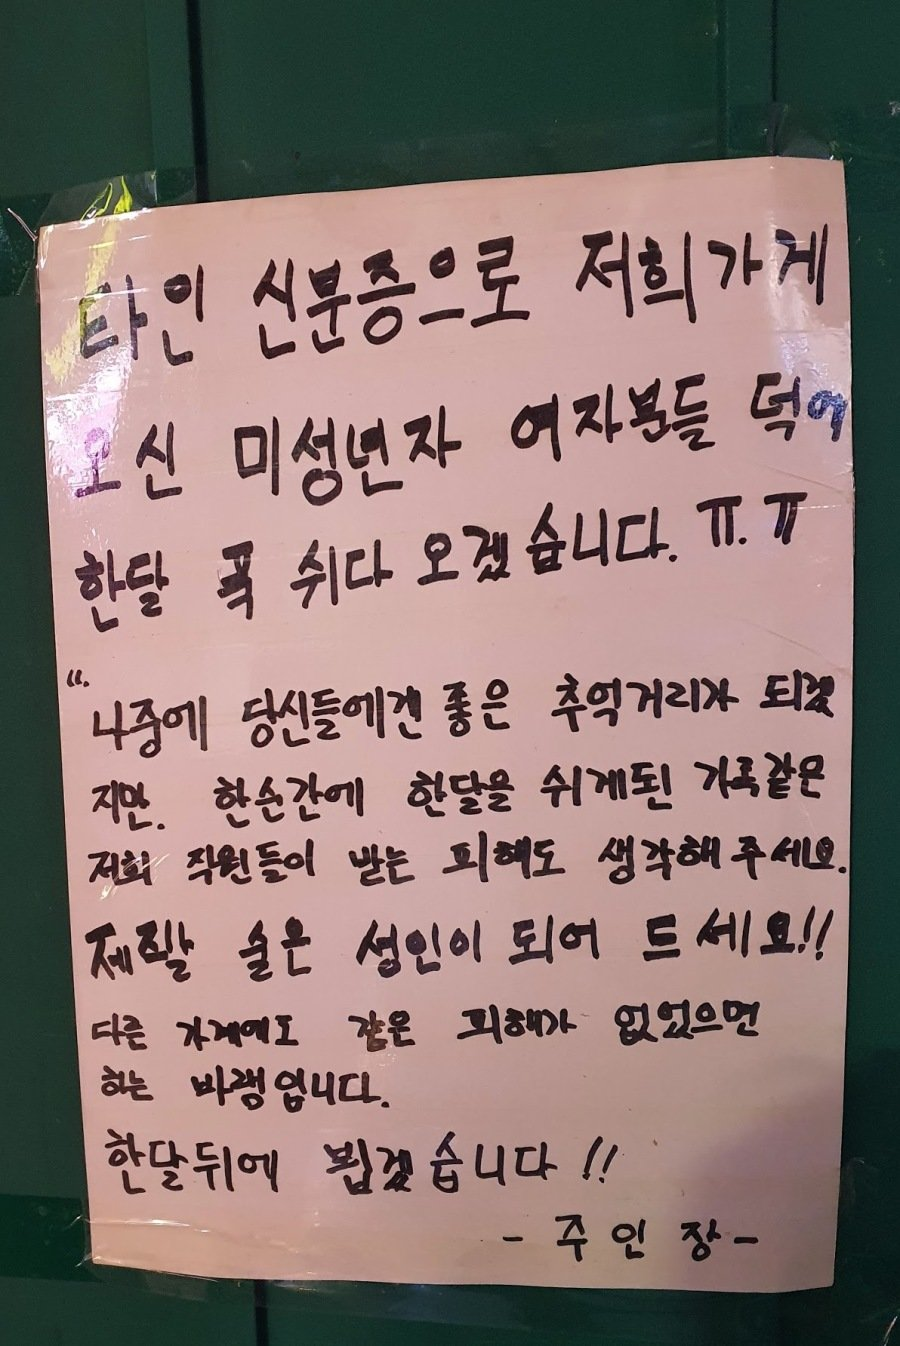 타인 신분증으로 저희가게
오신 미성년자 여자분들 덕에
한달 푹 쉬다 오겠습니다. ㅠ.ㅠ
“. 나중에 당신들에겐 좋은 추억거리가 되겠
지만. 한순간에 한달을 쉬게된 가족같은
저희 직원들이 받는 피해도 생각해주세요.
제발 술은 성인이 되어 드세요!!
다른 가게에도 같은 피해가 없었으면
하는 바램입니다.
한달뒤에 뵙겠습니다!!
- 주인장-